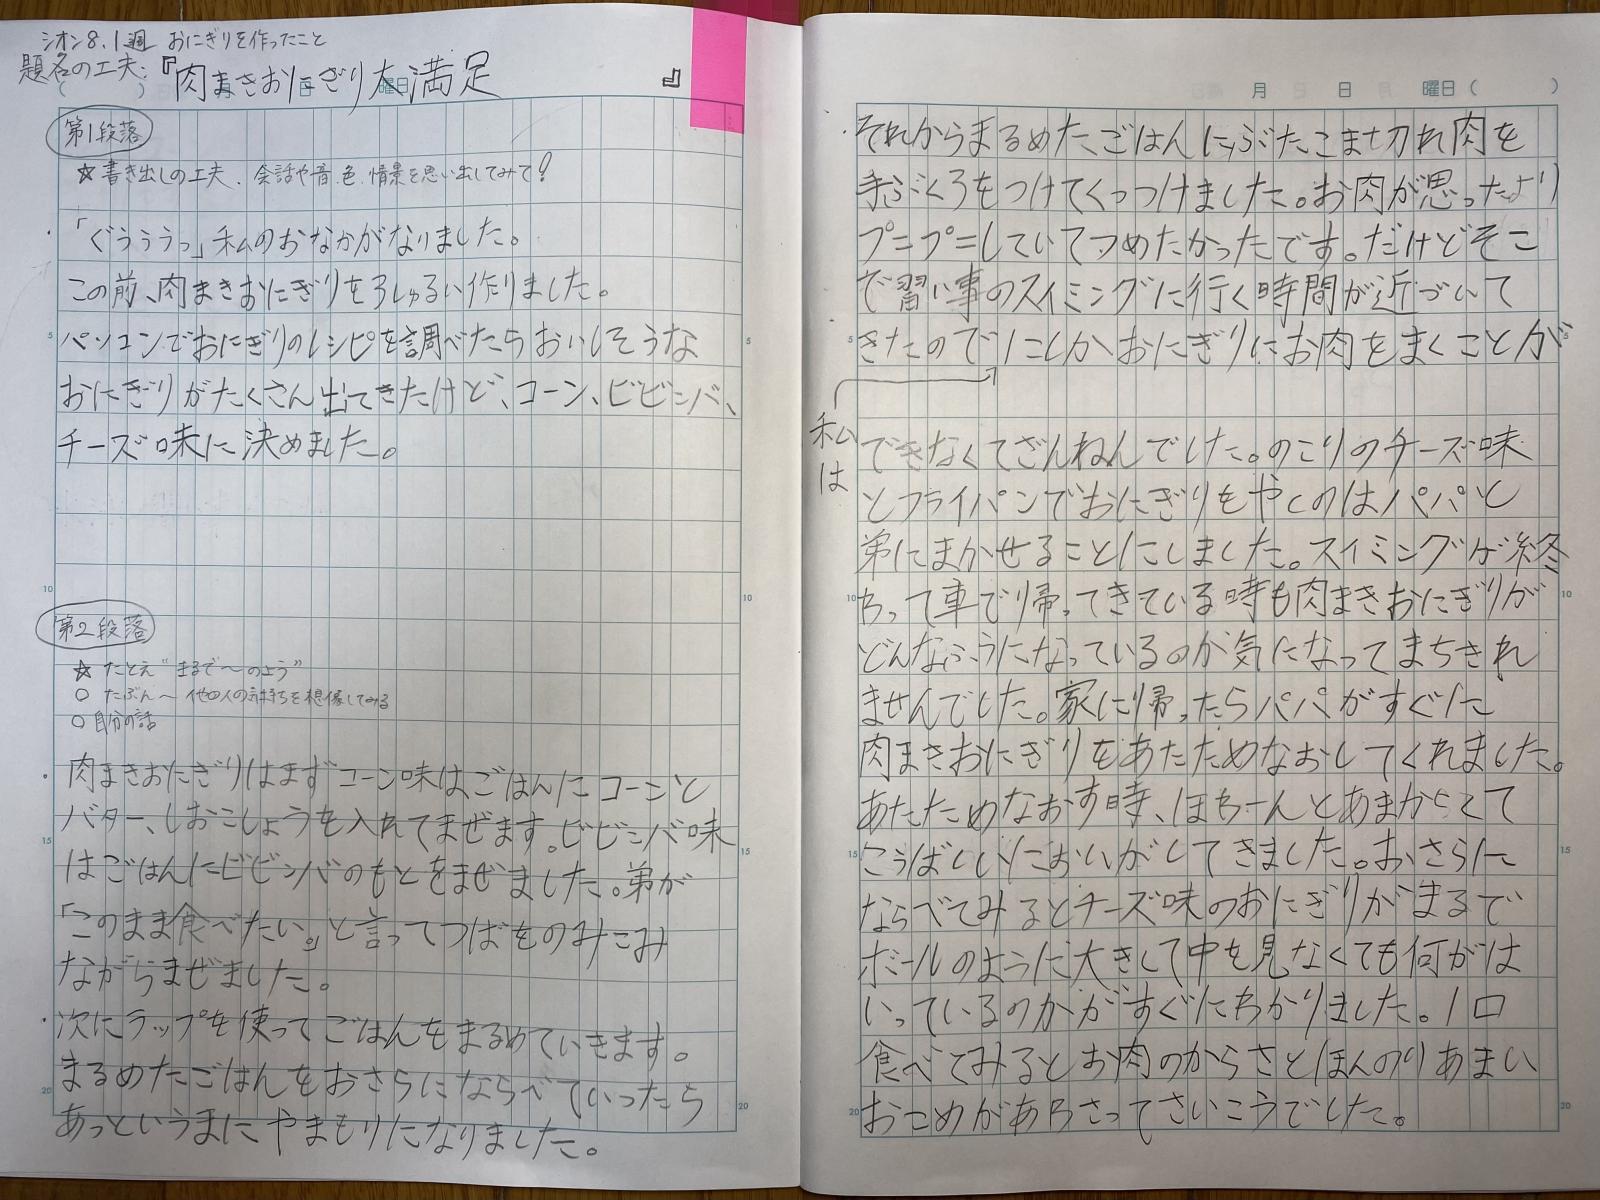 シオン8.1週 おにぎりを作ったこと
題名の工夫:『肉まきおにぎり大満足』
月 日 曜日 ( )
第1段落
☆書き出しの工夫、会話や音、色、情景を思い出してみて!
「ぐぅぅぅっ」私のおなかがなりました。
この前、肉まきおにぎりを3しゅるい作りました。
パソコンでおにぎりのレシピを調べたらおいしそうな
おにぎりがたくさん出てきたけど、コーン、ビビンバ、
チーズ味に決めました。
第2段落
☆ たとえ "まるで〜のよう"
○ たぶん〜 他の人の気持ちを想像してみる
○ 自分の話
肉まきおにぎりはまずコーン味は、ごはんにコーンと
バター、しおこしょうを入れてまぜます。ビビンバ味
はごはんにビビンバのもとをまぜました。弟が
「このまま食べたい。」と言ってつばをのみこみ
ながらまぜました。
次にラップを使ってごはんをまるめていきます。
まるめたごはんをおさらにならべていったら
あっというまにやまもりになりました。
5
10
15
20
5
10
15
20
月 日 曜日 ( )
それからまるめたごはんにぶたこま切れ肉を
手ぶくろをつけてくっつけました。お肉が思ったより
プニプニしていてつめたかったです。だけどそこ
で習い事のスイミングに行く時間が近づいて
きたので1こしかおにぎりにお肉をまくことが
私は
できなくてざんねんでした。のこりのチーズ味
とフライパンでおにぎりをやくのはパパと
弟にまかせることにしました。スイミングが終
わって車で帰ってきている時も肉まきおにぎりが
どんなふうになっているのか気になってまちきれ
ませんでした。家に帰ったらパパがすぐに
肉まきおにぎりをあたためなおしてくれました。
あたためなおす時、ほわーんとあまからくて
こうばしいにおいがしてきました。おさらに
ならべてみるとチーズ味のおにぎりがまるで
ボールのように大きくて中を見なくても何がは
いっているのかがすぐにわかりました。1口
食べてみるとお肉のからさとほんのりあまい
おこめがあわさってさいこうでした。
5
10
15
20
5
10
15
20